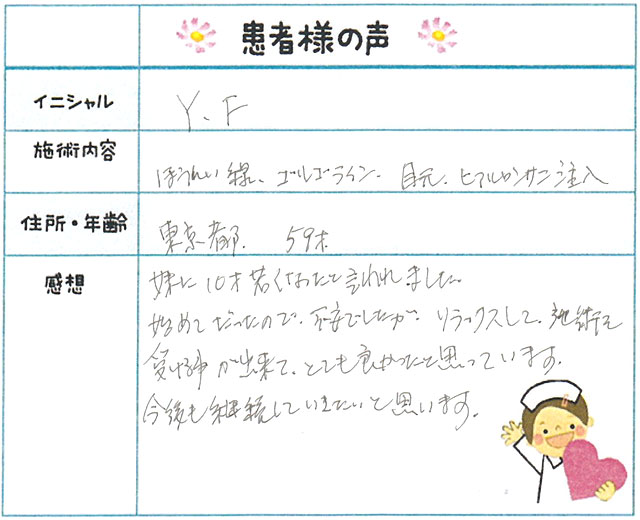 患者様の声
イニシャル Y、F
施術内容 ほうれい線、ゴルゴライン、目元、ヒアルロンサン注入
住所・年齢 東京都、59才
感想 妹に10才若くなったと言われました。
始めてだったので、不安でしたが、リラックスして、施術を
受ける事が出来て、とても良かったと思っています。
今後も継続していきたいと思います。